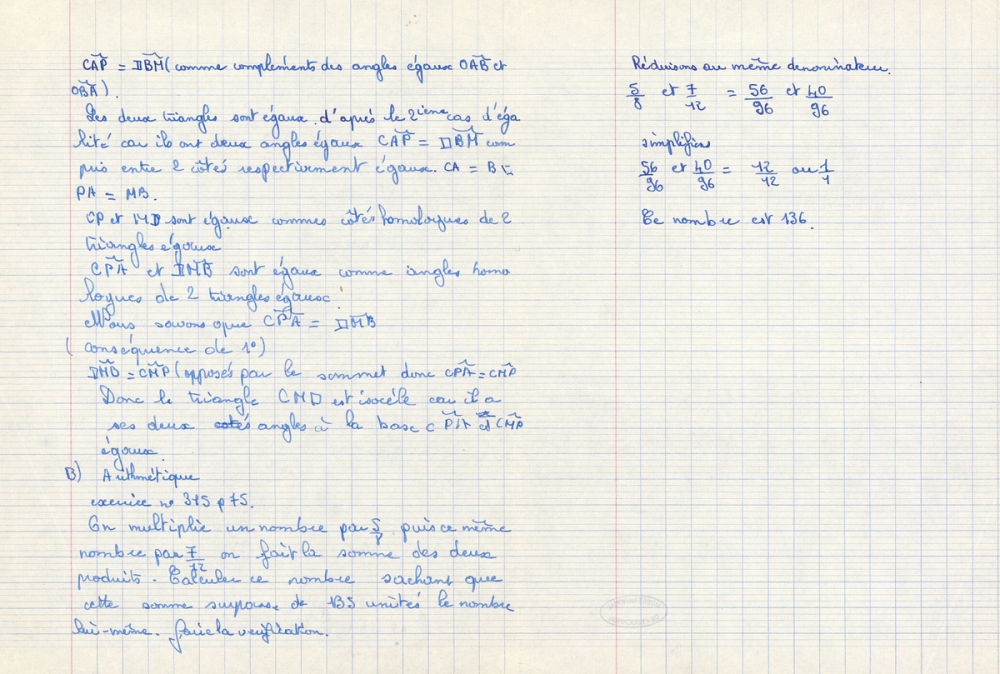 CAP = DBM (comme compléments des angles égaux OAB et
OBA).
Les deux triangles sont égaux d'après le 2ième cas d'éga
lité car ils ont deux angles égaux CAP = DBM com
pris entre 2 côtés respectivement égaux. CA = B
PA = MB.
CP et MD sont égaux commes côtés homologues de 2
triangles égaux
CPA et DMB sont égaux comme angles homo
logues de 2 triangles égaux.
Nous savons que CPA = DMB
(conséquence de 1°)
DMB = CMP (opposés par le sommet donc CPA = CMP
Donc le triangle CMD est isocèle car il a
ses deux cotés angles à la base CPA et CMP
égaux.
B) Arithmétique
exercice n° 375 p 75.
On multiplie un nombre par 5/8 puis ce même
nombre par 7/12 on fait la somme des deux
produits. Calculer ce nombre sachant que
cette somme surpasse de 135 unités le nombre
lui-même. faire la verification.
Réduisons au même denominateur.
5/8 et 7/12 = 56/96 et 40/96
simplifions
56/96 et 40/96 = 12/12 ou 1/1
Ce nombre est 136.